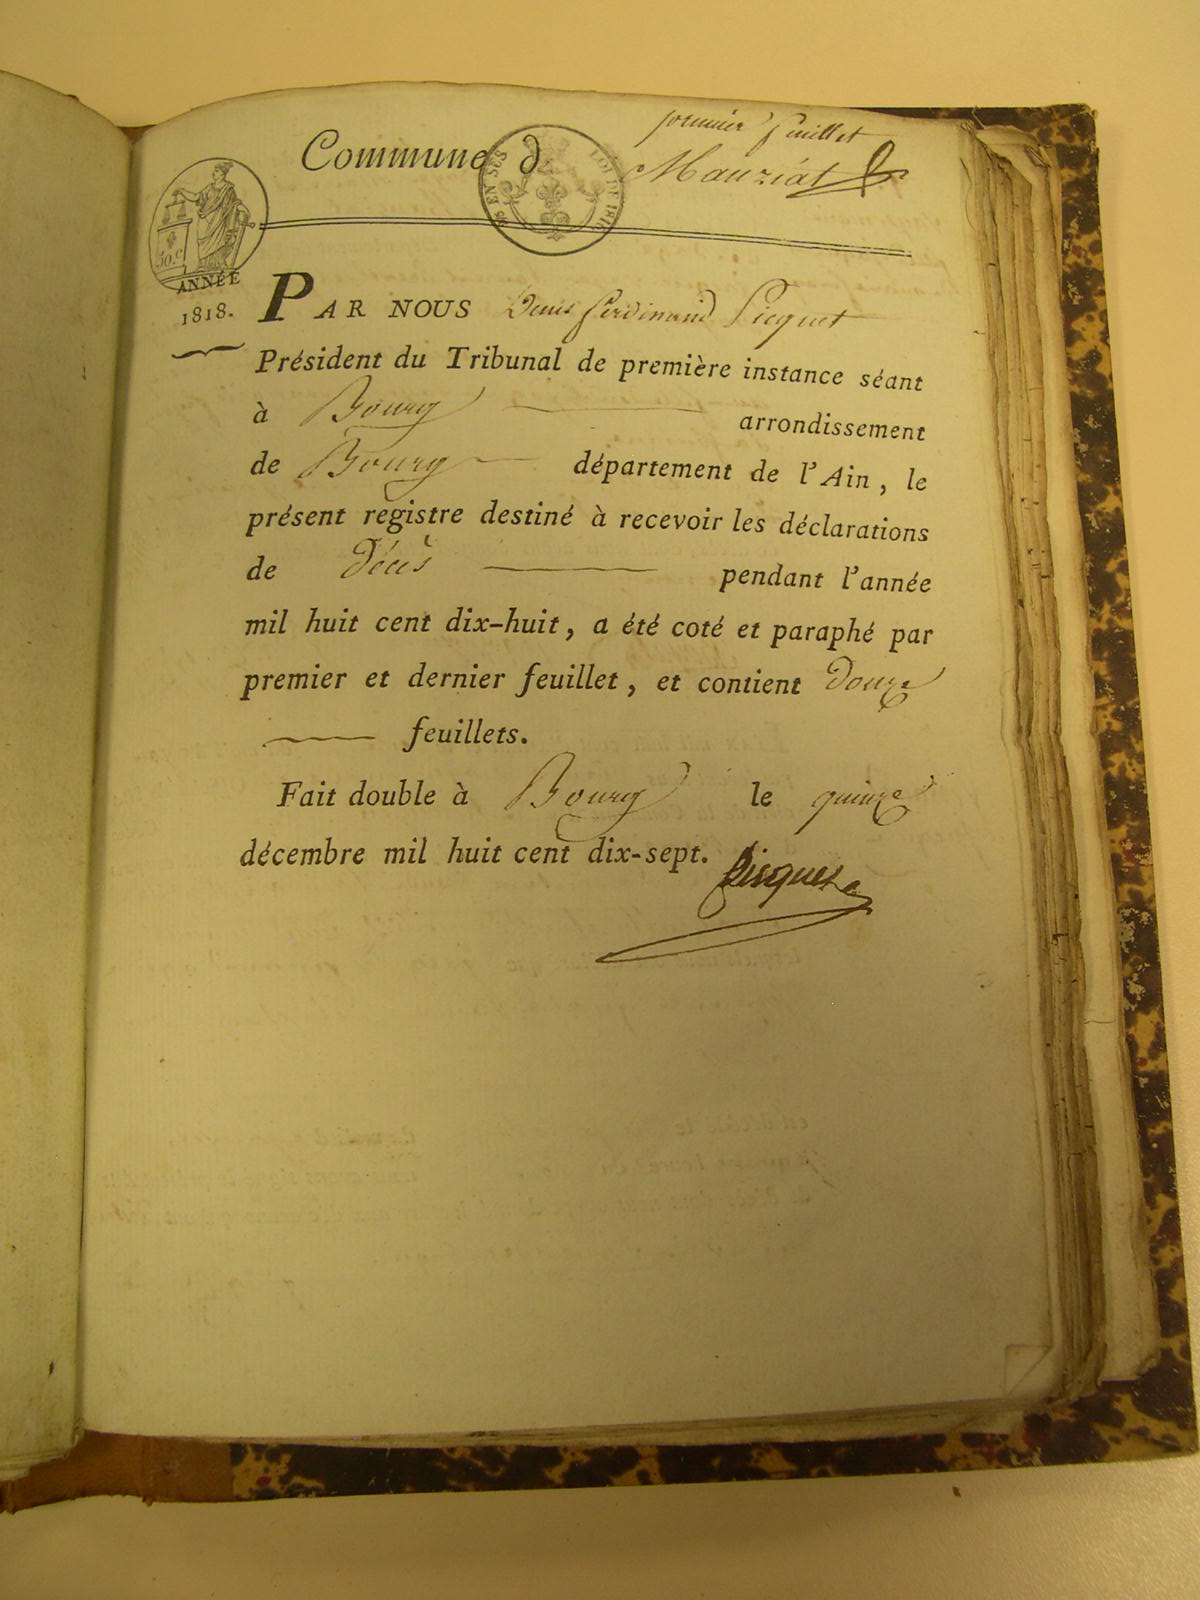 premier feuillet
Commune d Mauziat
EN SUS LOI DE 1816
50.c
ANNÉE
1818.
PAR NOUS Denis Ferdinand Picquet
Président du Tribunal de première instance séant
à Bourg arrondissement
de Bourg département de l'Ain, le
présent registre destiné à recevoir les déclarations
de décès pendant l'année
mil huit cent dix-huit, a été coté et paraphé par
premier et dernier feuillet, et contient douze
feuillets.
Fait double à Bourg le quinze
décembre mil huit cent dix-sept. Picquet